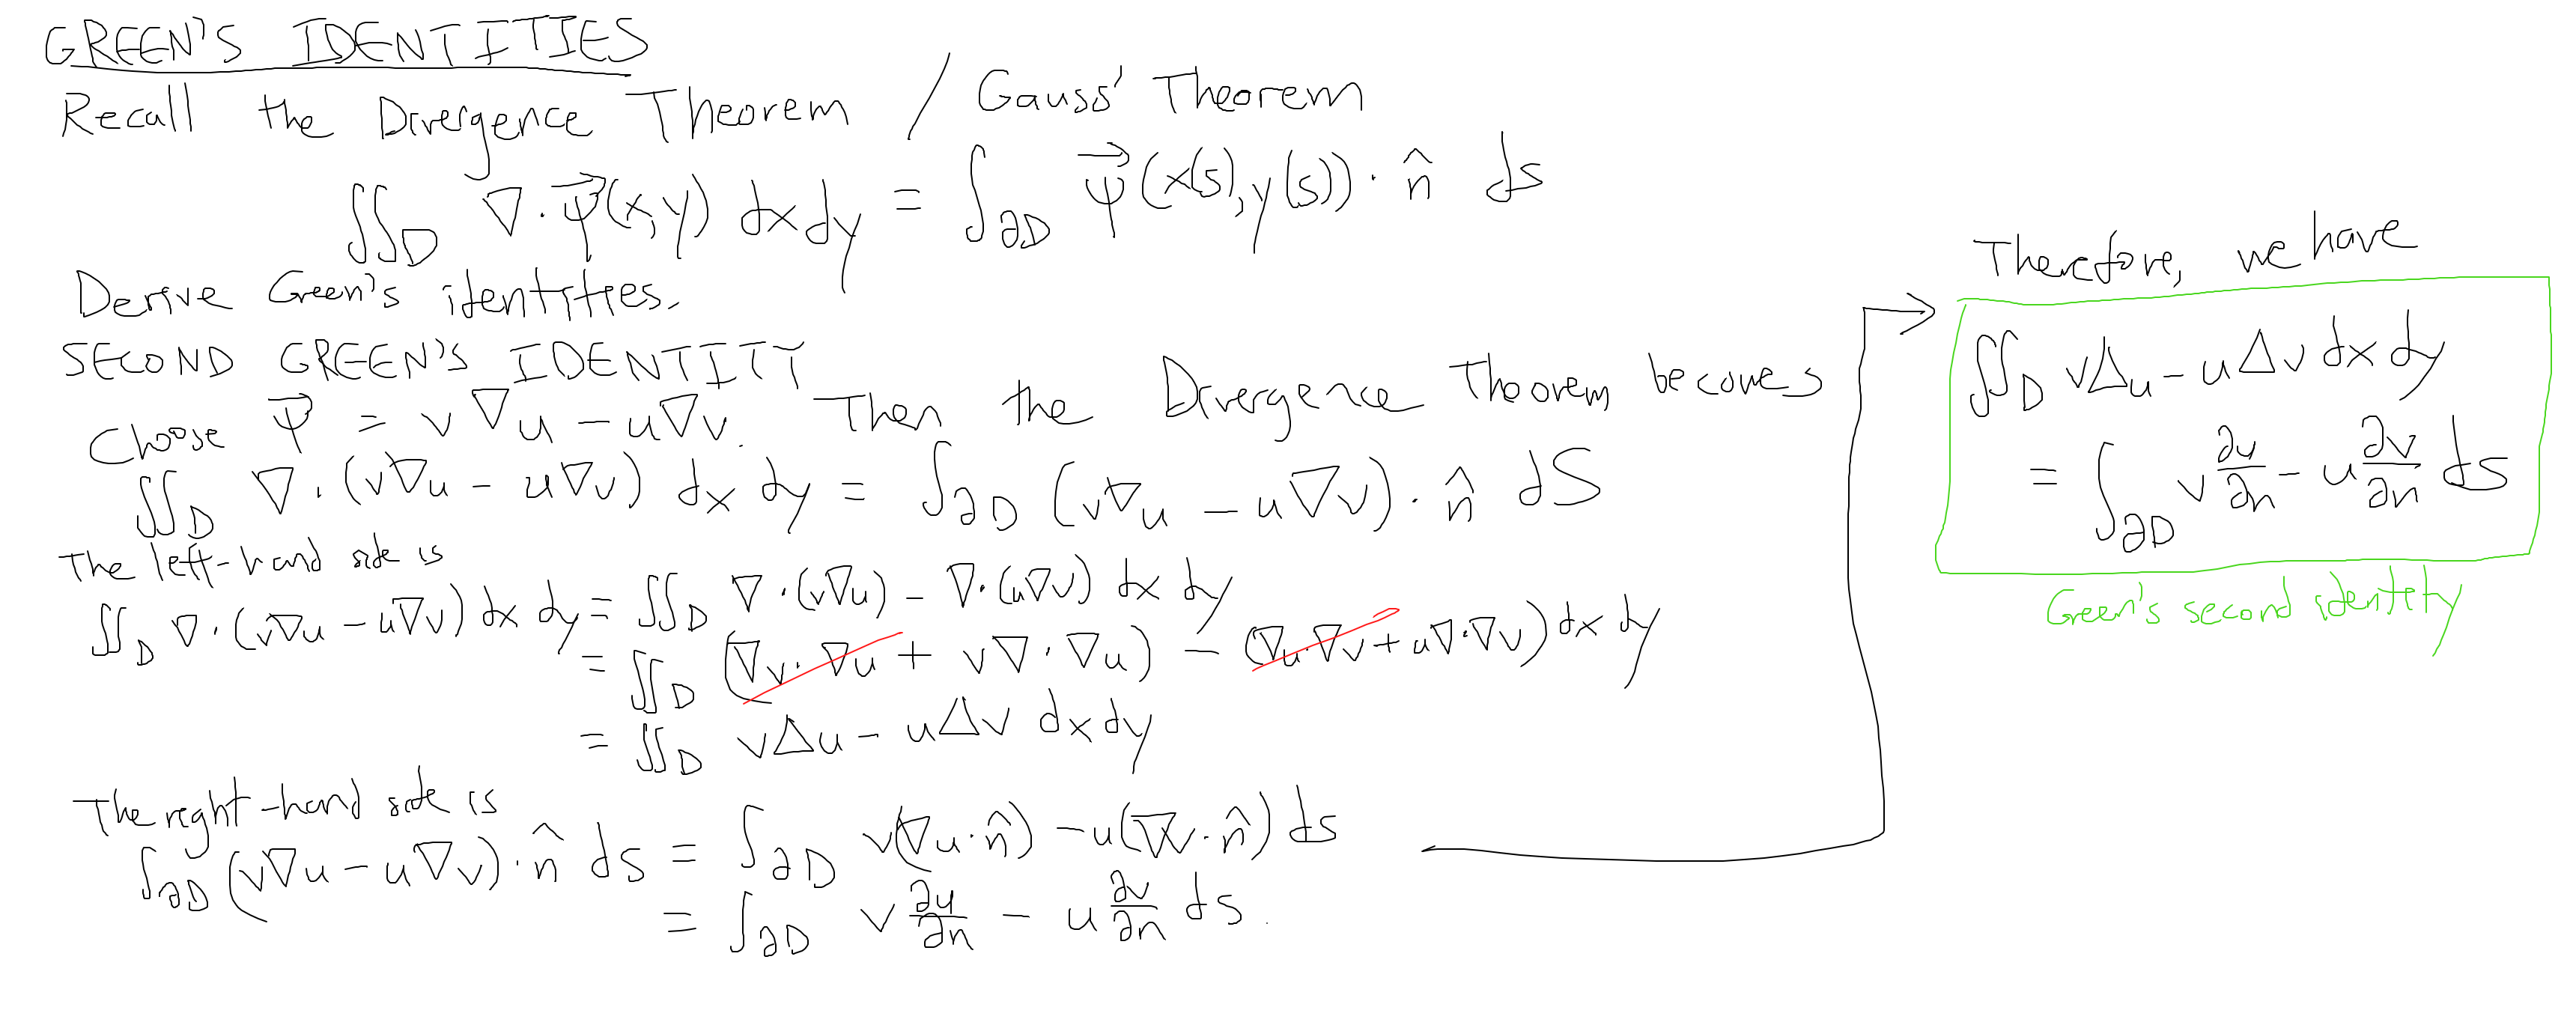 GREEN'S IDENTITIES
Recall the Divergence Theorem / Gauss' Theorem
∬_D ∇·ψ⃗(x,y) dx dy = ∫_∂D ψ⃗(x(s),y(s))·n̂ ds
Derive Green's identities.
SECOND GREEN'S IDENTITY
Choose ψ⃗ = v∇u - u∇v. Then the Divergence Theorem becomes
∬_D ∇·(v∇u - u∇v) dx dy = ∫_∂D (v∇u - u∇v)·n̂ dS
The left-hand side is
∬_D ∇·(v∇u - u∇v) dx dy = ∬_D ∇·(v∇u) - ∇·(u∇v) dx dy
= ∬_D (∇v·∇u + v∇·∇u) - (∇u·∇v + u∇·∇v) dx dy
= ∬_D vΔu - uΔv dx dy
The right-hand side is
∫_∂D (v∇u - u∇v)·n̂ ds = ∫_∂D v(∇u·n̂) - u(∇v·n̂) ds
= ∫_∂D v ∂u/∂n - u ∂v/∂n ds.
Therefore, we have
∬_D vΔu - uΔv dx dy
= ∫_∂D v ∂u/∂n - u ∂v/∂n ds
Green's second identity